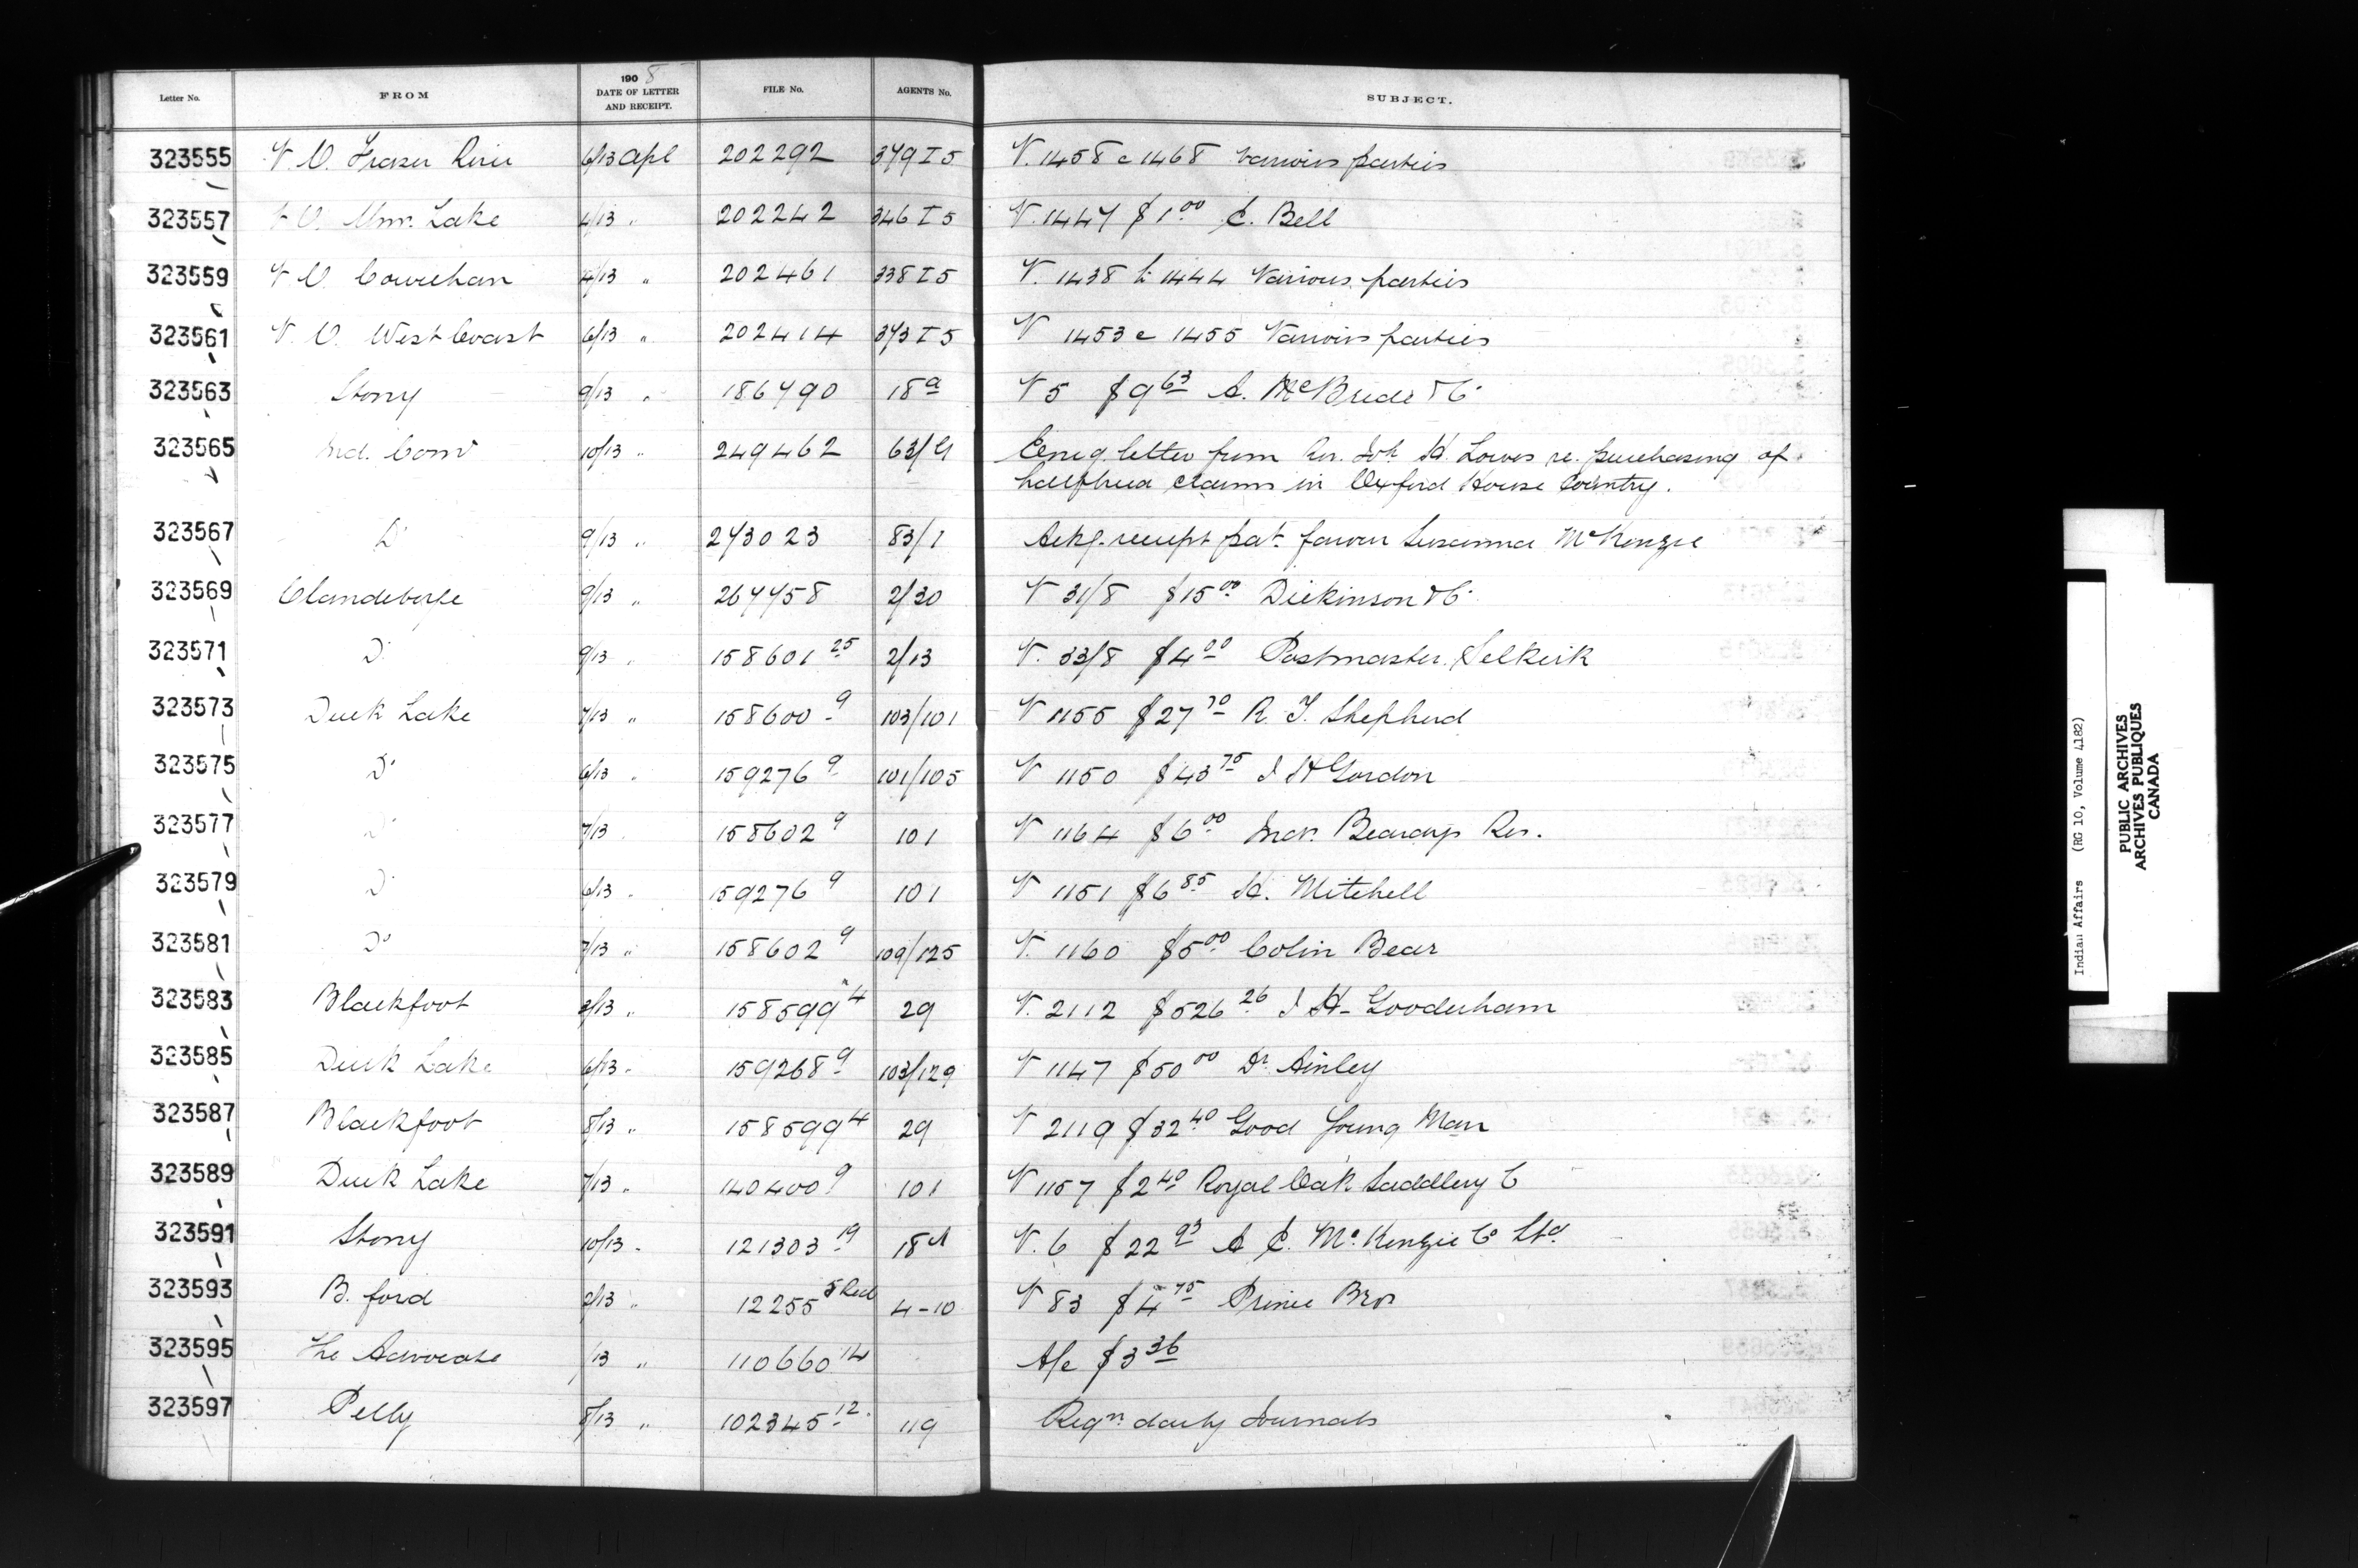 Letter No. FROM 190 8 DATE OF LETTER AND RECEIPT. FILE No. AGENTS No. SUBJECT.
323555 V. O. Fraser River 6/13 Apl 202292 379 I 5 V. 1458 c 1468 various parties
323557 V O. Wms. Lake 4/13 " 202242 346 I 5 V. 1447 $1.00 C. Bell
323559 V O. Cowichan 4/13 " 202461 338 I 5 V. 1438 to 1444 Various parties
323561 V. O. West Coast 6/13 " 202414 373 I 5 V 1453 c 1455 Various parties
323563 Stony 9/13 " 186790 18a V 5 $9 63 A. McBride & Co
323565 Ind. Comr 10/13 " 249462 63/ letter from Jos. H. Lowes re. purchasing of
halfbreed claims in Oxford House Country.
323567 Do 9/13 " 273023 83/1 Ackg. receipt pat. favour Susanna McKenzie
323569 Clandeboye 9/13 " 267758 2/30 V 31/8 $15 00 Dickinson & Co
323571 Do 9/13 " 158601 25 2/13 V. 33/8 $4 00 Postmaster, Selkirk
323573 Duck Lake 7/13 " 158600 9 103/101 V 1155 $27 70 R. J. Shepherd
323575 Do 6/13 " 159276 9 101/105 V 1150 $43 75 J H Gordon
323577 Do 7/13 158602 9 101 V 1164 $6 00 Beardys Res.
323579 Do 6/13 " 159276 9 101 V 1151 $6 85 H. Mitchell
323581 Do 7/13 " 158602 9 109/125 V. 1160 $5 00 Colin Bear
323583 Blackfoot 2/13 " 158599 4 29 V. 2112 $526 26 J H. Gooderham
323585 Duck Lake 6/13 " 159268 9 103/129 V 1147 $50 00 Dr. Ainley
323587 Blackfoot 8/13 " 158599 4 29 V 2119 $32 40 Good Young Man
323589 Duck Lake 7/13 " 140400 9 101 V 1157 $2 40 Royal Oak Saddlery Co
323591 Stony 10/13 " 121303 19 18 V. 6 $22 93 A C. McKenzie Co Ltd
323593 B. ford 2/13 " 12255 5 Red 4-10 V 83 $4 75 Prince Bros
323595 The Advocate /13 " 110660 14 A/c $3 36
323597 Pelly 8/13 " 102345 12 119 Reqn daily Journals
Indian Affairs (RG 10, Volume 4182)
PUBLIC ARCHIVES
ARCHIVES PUBLIQUES
CANADA